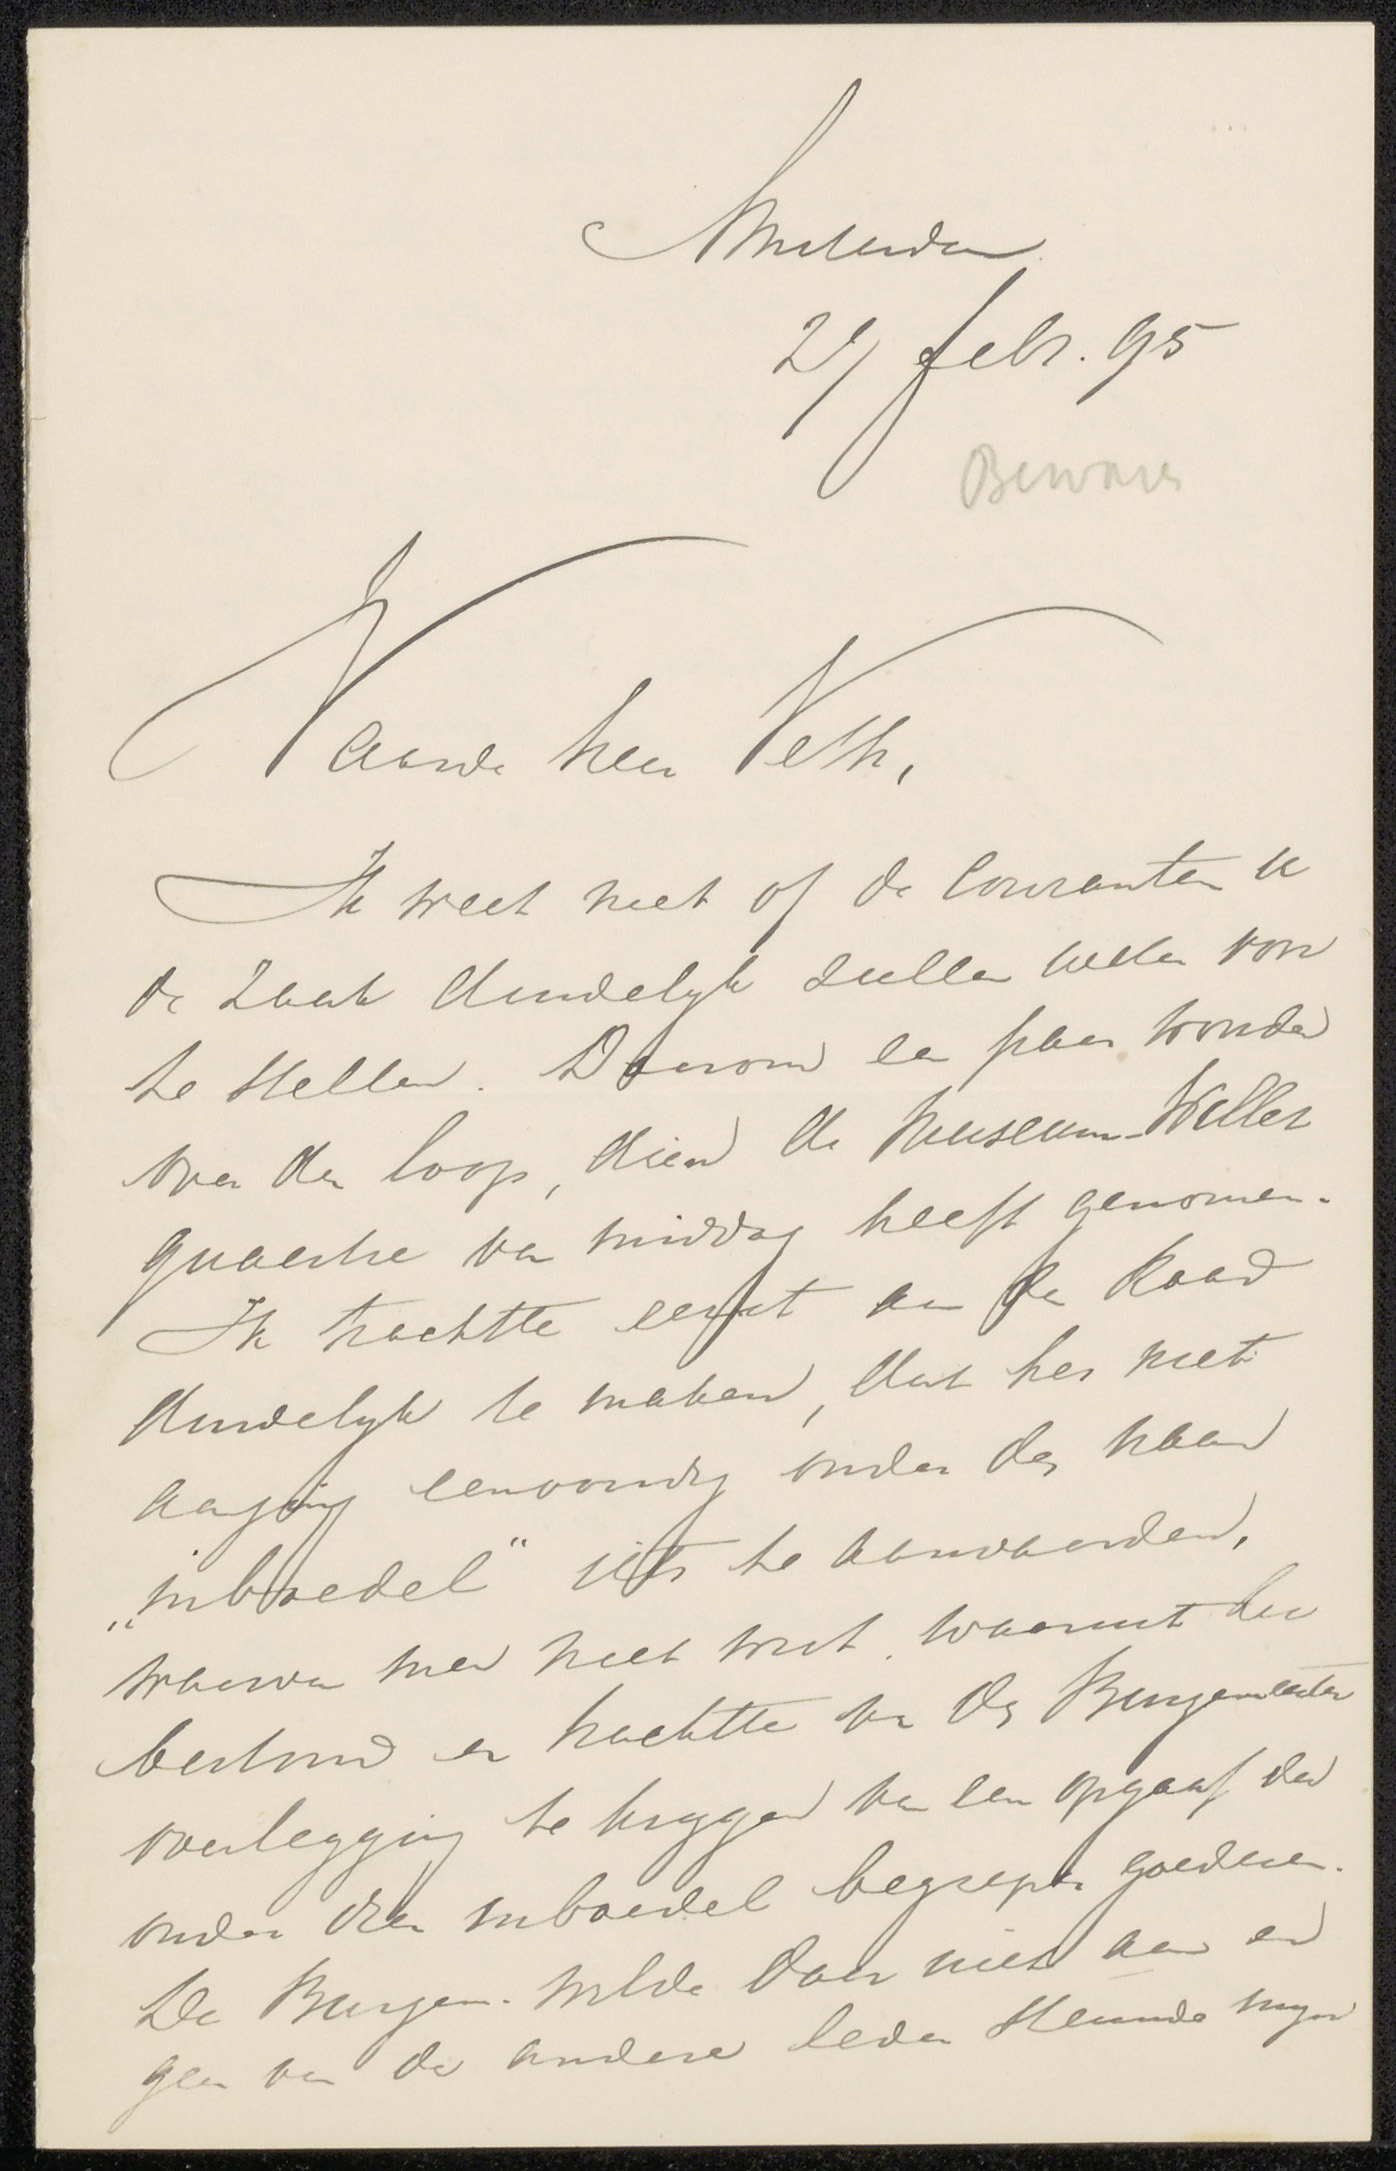 Amsterdam
27 febr. 95
Bewaren
Waarde heer Veth,
Ik weet niet of de couranten u
de zaak duidelyk zullen weten voor
te stellen. Daarom een paar woorden
over den loop, dien de Museum-Willet
quaestie van middag heeft genomen.
Ik trachtte eerst aan den Raad
duidelyk te maken, dat het niet
aanging eenvoudig onder den naam
„inboedel" iets te aanvaarden,
waarvan men niet wist, waaruit het
bestond en trachtte van den Burgemeester
overlegging te krygen van een opgaaf der
onder dien inboedel begrepen goederen.
De Burgem. wilde daar niet aan en
geen van de andere leden steunde myn